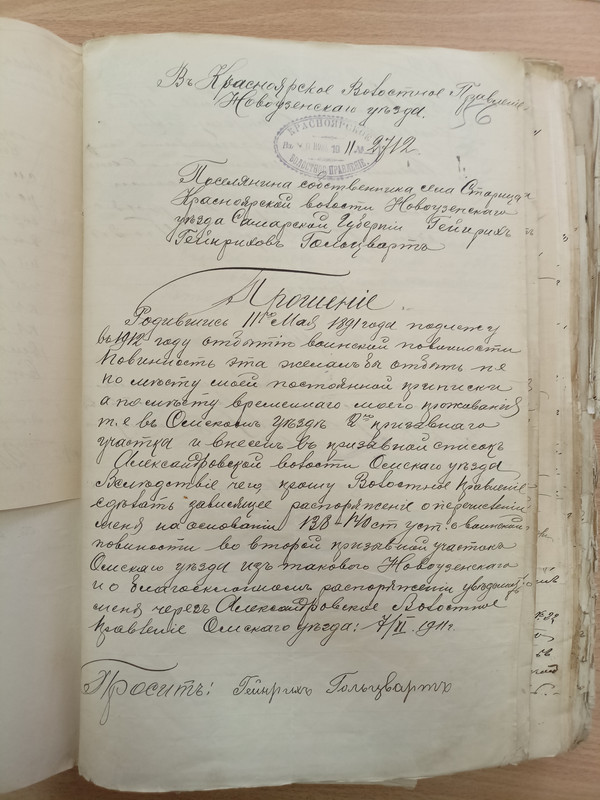 Въ Красноярское Волостное Правленіе
Новоузенскаго уѣзда.
56
КРАСНОЯРСКОЕ
II № 2712.
ВОЛОСТНОЕ ПРАВЛЕНІЕ.
Поселянина собственника села Старица
Красноярской волости Новоузенскаго
уѣзда Самарской Губерніи Гейнрихъ
Гейнриховъ Гольцвартъ
Прошеніе
Родившись 11го Мая 1891 года подлежу
въ 1912 году отбытію воинской повинности
Повинность эта желалъ бы отбыть не
по мѣсту моей постоянной приписки
а по мѣсту временнаго моего проживанія
т.е въ Омскомъ уѣздѣ 2го призывнаго
участка и внесенъ въ призывной списокъ
Александровской волости Омскаго уѣзда
Вслѣдствіе чего, прошу Волостное Правленіе
сдѣлать зависящее распоряженіе о перечисленіи
меня на основаніи 138-140 ст уст. о воинской
повиности во второй призывной участокъ
Омскаго уѣзда изъ таковаго Новоузенскаго
и о благосклонномъ распоряженіи увѣдомить
меня черезъ Александровское Волостное
Правленіе Омскаго уѣзда: 7/VI 1911 г.
Проситъ: Гейнрихъ Гольцвартъ